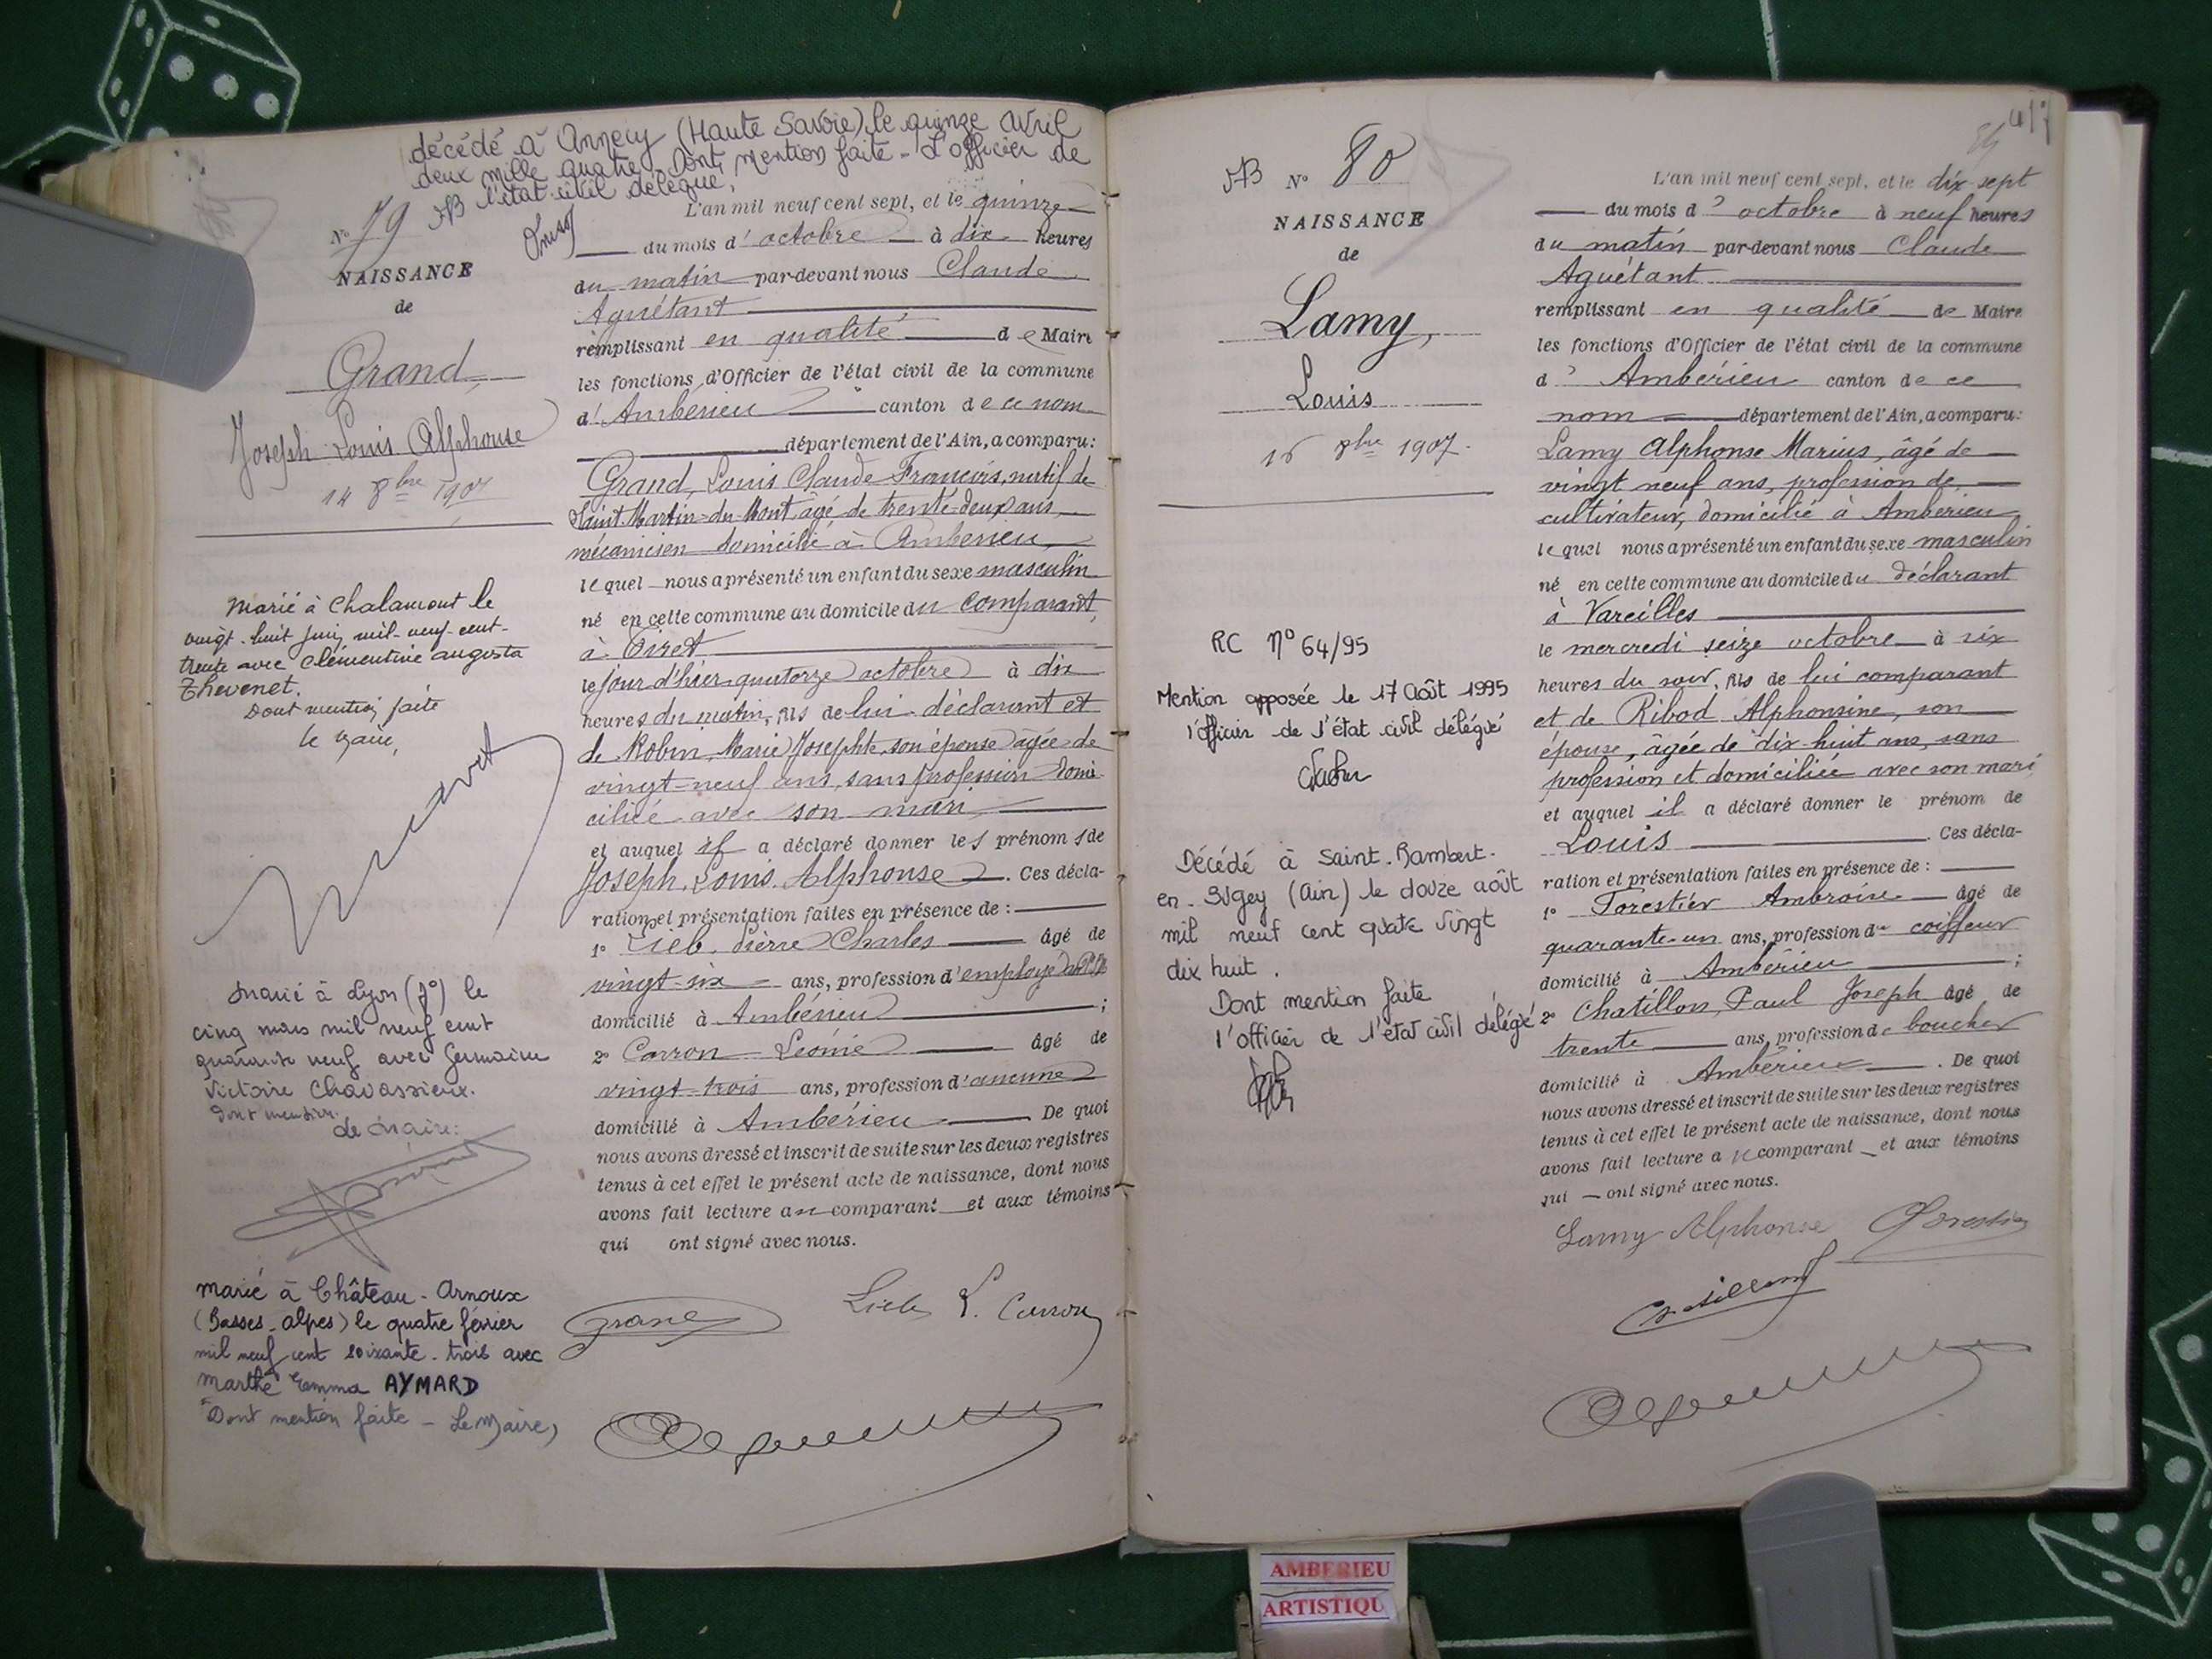 décédé à Annecy (Haute Savoie) le quinze Avril
deux mille quatre. Dont mention faite - L'officier de
l'état civil délégué,
N° 79
NAISSANCE
de
Grand,
Joseph Louis Alphonse
14 8bre 1907
Marié à Chalamont le
vingt-huit juin mil-neuf-cent-
trente avec Clémentine Augusta
Thevenet.
Dont mention faite
le maire,
Marié à Lyon (7°) le
cinq mars mil neuf cent
quarante neuf avec Germaine
Victoire Chavassieux.
Dont mention.
Le Maire:
Marié à Château-Arnoux
(Basses-Alpes) le quatre février
mil neuf cent soixante-trois avec
Marthe Emma AYMARD
Dont mention faite - Le Maire,
L'an mil neuf cent sept, et le quinze
du mois d'octobre à dix heures
du matin par-devant nous Claude
Aguétant
remplissant en qualité de Maire
les fonctions d'Officier de l'état civil de la commune
d'Ambérieu canton de ce nom
département de l'Ain, a comparu:
Grand, Louis Claude François, natif de
Saint Martin-du-Mont âgé de trente-deux ans,
mécanicien domicilié à Ambérieu,
lequel nous a présenté un enfant du sexe masculin
né en cette commune au domicile du comparant,
à Tiret
le jour d'hier quatorze octobre à dix
heures du matin, fils de lui déclarant et
de Robin Marie Josephte, son épouse âgée de
vingt-neuf ans, sans profession domi-
ciliée avec son mari
et auquel il a déclaré donner les prénoms de
Joseph Louis Alphonse. Ces décla-
ration et présentation faites en présence de :
1° Lieb, Pierre Charles âgé de
vingt-six ans, profession d'employé
domicilié à Ambérieu ;
2° Carron Léonie âgé de
vingt-trois ans, profession d'aucune
domicilié à Ambérieu De quoi
nous avons dressé et inscrit de suite sur les deux registres
tenus à cet effet le présent acte de naissance, dont nous
avons fait lecture au comparant et aux témoins
qui ont signé avec nous.
Grand
Lieb L. Carron
N° 80
NAISSANCE
de
Lamy,
Louis
16 8bre 1907.
RC N° 64/95
Mention apposée le 17 Août 1995
l'officier de l'état civil délégué
Décédé à Saint-Rambert-
en-Bugey (Ain) le douze août
mil neuf cent quatre vingt
dix huit.
Dont mention faite
l'officier de l'état civil délégué
L'an mil neuf cent sept, et le dix sept
du mois d'octobre à neuf heures
du matin par-devant nous Claude
Aguétant
remplissant en qualité de Maire
les fonctions d'Officier de l'état civil de la commune
d'Ambérieu canton de ce
nom département de l'Ain, a comparu:
Lamy Alphonse Marius, âgé de
vingt neuf ans, profession de
cultivateur, domicilié à Ambérieu
lequel nous a présenté un enfant du sexe masculin
né en cette commune au domicile du déclarant
à Vareilles
le mercredi seize octobre à six
heures du soir, fils de lui comparant
et de Ribod Alphonsine, son
épouse, âgée de dix-huit ans, sans
profession et domiciliée avec son mari
et auquel il a déclaré donner le prénom de
Louis. Ces décla-
ration et présentation faites en présence de :
1° Forestier Ambroise âgé de
quarante-un ans, profession de coiffeur
domicilié à Ambérieu ;
2° Chatillon, Paul Joseph âgé de
trente ans, profession de boucher
domicilié à Ambérieu. De quoi
nous avons dressé et inscrit de suite sur les deux registres
tenus à cet effet le présent acte de naissance, dont nous
avons fait lecture a comparant et aux témoins
qui ont signé avec nous.
Lamy Alphonse Forestier
AMBERIEU
ARTISTIQU